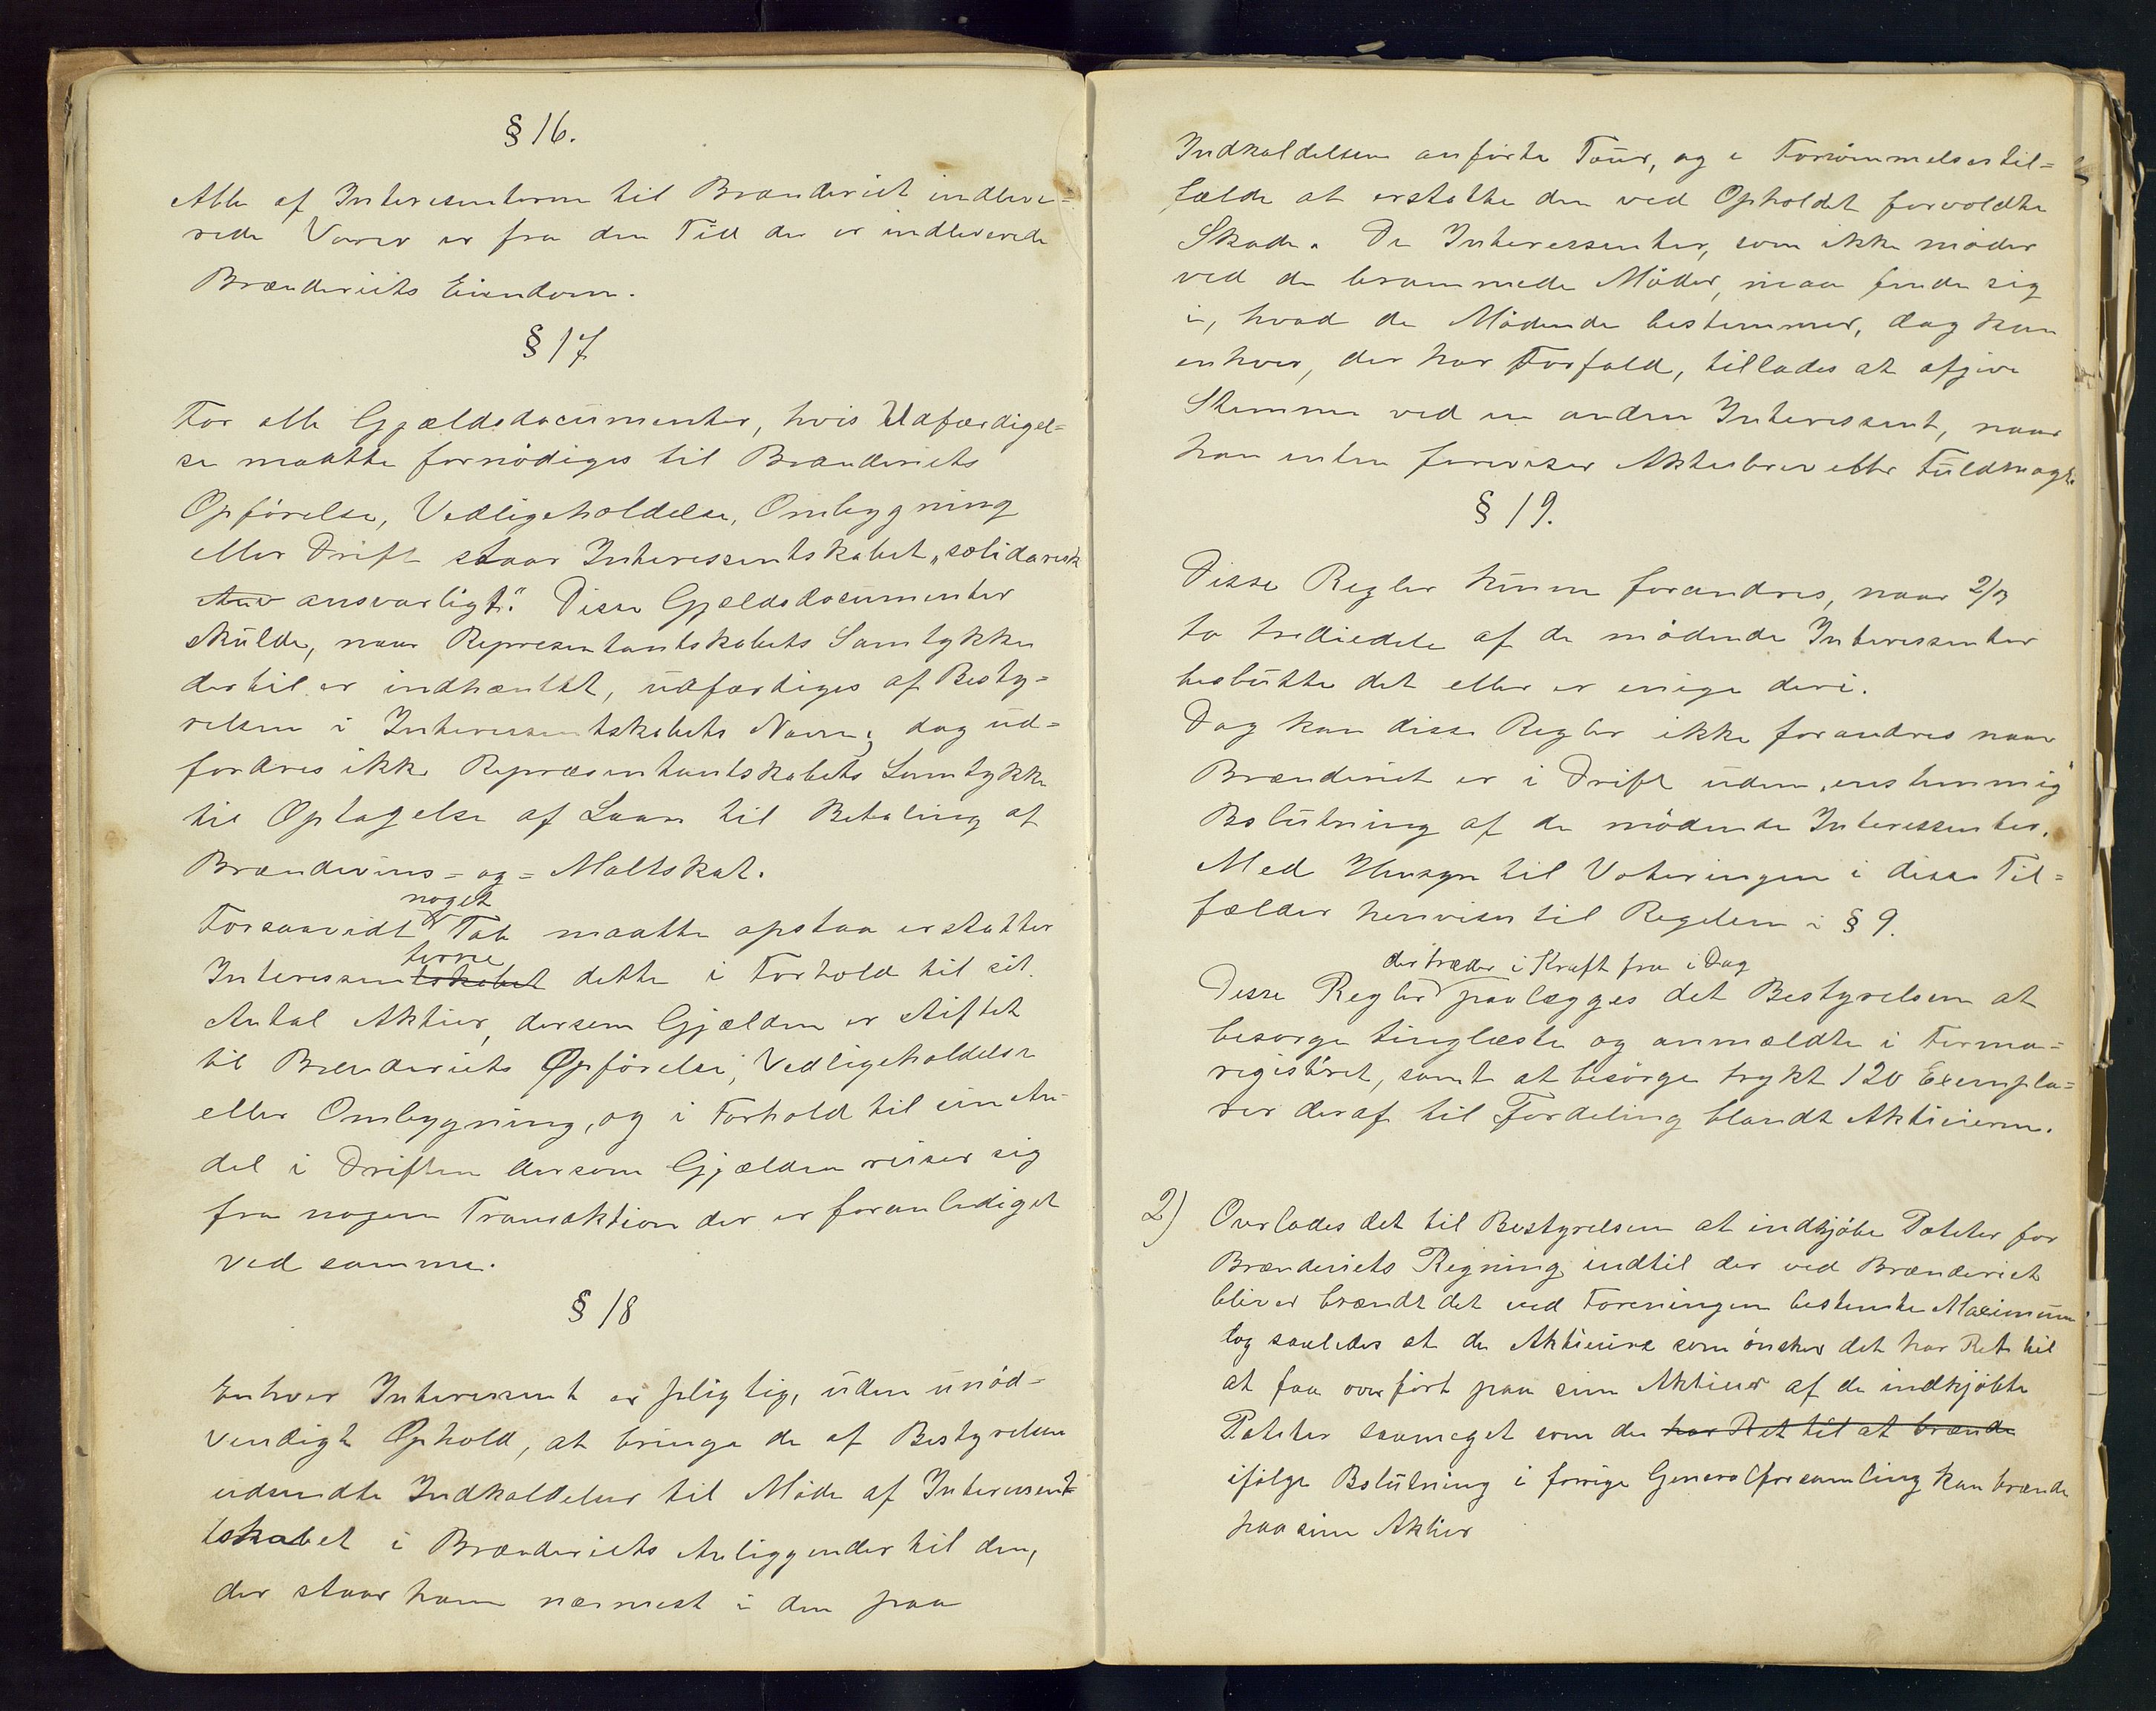 § 16.
Alle af Interesenterne til Brænderiet indleve=
rede Varer er fra den Tid de er indleverede
Brænderiets Eiendom.
§ 17
For alle Gjældsdocumenter, hvis Udfærdigel=
se maatte fornödiges til Brænderiets
Opförelse, Vedligeholdelse, Ombygning
eller Drift staar Interessentskabet „solidarisk
Anv ansvarligt". Disse Gjældsdocumenter
skulde, naar Representantskabets Samtykke
dertil er indhæntet, udfærdiges af Besty=
relsen i Interessentskabets Navn; dog ud=
fordres ikke Repræsentantskabets Samtykke
til Optagelse af Laan til Betaling af
Brændevins= og= Maltskat.
noget
Forsaavidt Tab maatte opstaa erstatter
terne
Interessentskabet dette i Forhold til sit
Antal Aktier, dersom Gjælden er stiftet
til Brænderiets Opförelse, Vedligeholdelse
eller Ombygning, og i Forhold til sin An-
del i Driften dersom Gjælden reiser sig
fra nogen Transaktion der er foranlediget
ved samme.
§ 18
Enhver Interessent er pligtig, uden unöd-
vendigt Ophold, at bringe de af Bestyrelsen
udsendte Indkaldelser til Möde af Interessent=
tskabet i Brænderiets Anliggender til den,
der staar ham nærmest i den paa
Indkaldelsen anförte Tour, og i Forsömmelsestil=
fælde at erstatte den ved Opholdet forvoldte
Skade. De Interessenter, som ikke möder
ved de berammede Möder, maa finde sig
i, hvad de Mödende bestemmer, dog kan
enhver, der har Forfald, tillades at afgive
Stemme ved en anden Interessent, naar
han enten foreviser Aktiebrev eller Fuldmagt.
§ 19.
Disse Regler kunne forandres, naar 2/3
to trediedele af de mödende Interessenter
beslutte det eller er enige deri.
Dog kan disse Regler ikke forandres naar
Brænderiet er i Drift uden „enstemmig"
Beslutning af de mödende Interessenter.
Med Hensyn til Voteringen i disse Til=
fælder henvises til Regelen i § 9.
der træder i Kraft fra i Dag
Disse Regler paalægges det Bestyrelsen at
besörge tinglæste og anmeldte i Firma=
registeret, samt at besörge trykt 120 Exempla=
rer deraf til Fordeling blandt Aktieierne.
2) Overlades det til Bestyrelsen at indkjöbe Poteter for
Brænderiets Regning indtil der ved Brænderiet
bliver brændt det ved Foreningen bestemte Maximum
og saaledes at de Aktieiere som önsker det har Ret til
at faa overfört paa sine Aktier af de indkjöbte
Poteter saameget som de har Ret til at brænde
ifölge Beslutning i forrige Generalforsamling kan brænde
paa sine Aktier